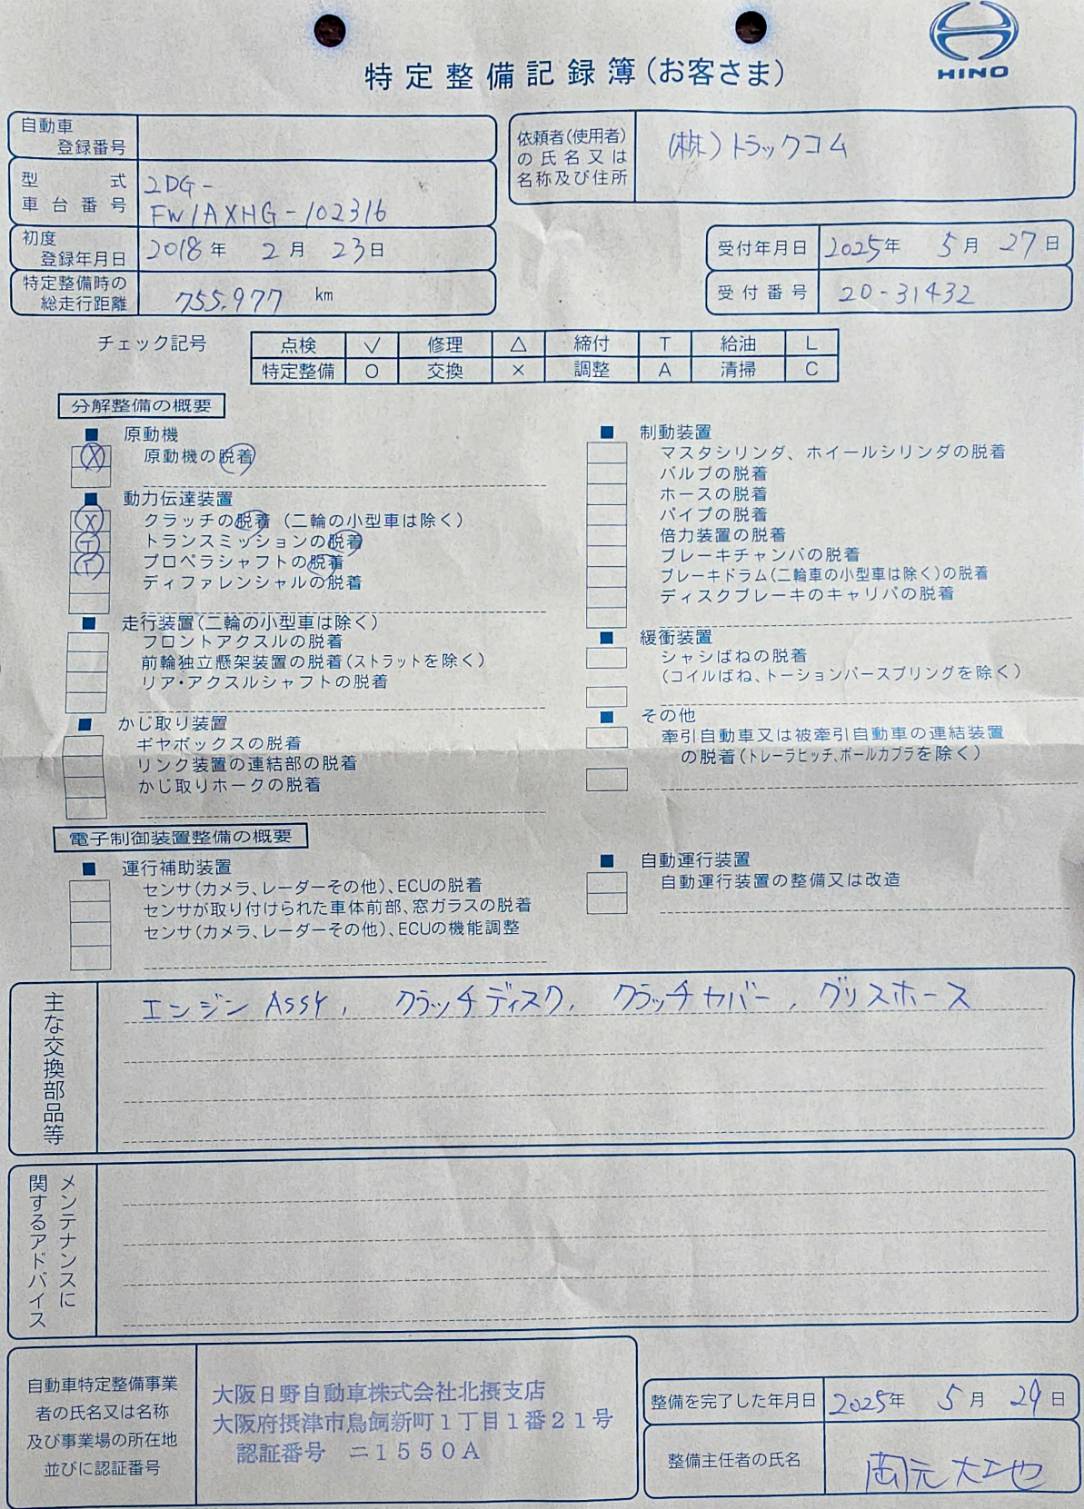 HINO
特定整備記録簿(お客さま)
自動車
登録番号
依頼者(使用者)
の氏名又は
名称及び住所
(株)トラックコム
型式
車台番号
2DG-
FW1AXHG-102316
初度
登録年月日
2018年 2月 23日
受付年月日
2025年 5月 27日
特定整備時の
総走行距離
755,977 km
受付番号
20-31432
チェック記号
点検 √ 修理 △ 締付 T 給油 L
特定整備 O 交換 × 調整 A 清掃 C
分解整備の概要
■ 原動機
X 原動機の脱着
■ 動力伝達装置
X クラッチの脱着(二輪の小型車は除く)
T トランスミッションの脱着
T プロペラシャフトの脱着
ディファレンシャルの脱着
■ 走行装置(二輪の小型車は除く)
フロントアクスルの脱着
前輪独立懸架装置の脱着(ストラットを除く)
リア・アクスルシャフトの脱着
■ かじ取り装置
ギヤボックスの脱着
リンク装置の連結部の脱着
かじ取りホークの脱着
■ 制動装置
マスタシリンダ、ホイールシリンダの脱着
バルブの脱着
ホースの脱着
パイプの脱着
倍力装置の脱着
ブレーキチャンバの脱着
ブレーキドラム(二輪車の小型車は除く)の脱着
ディスクブレーキのキャリパの脱着
■ 緩衝装置
シャシばねの脱着
(コイルばね、トーションバースプリングを除く)
■ その他
牽引自動車又は被牽引自動車の連結装置
の脱着(トレーラヒッチ、ボールカプラを除く)
電子制御装置整備の概要
■ 運行補助装置
センサ(カメラ、レーダーその他)、ECUの脱着
センサが取り付けられた車体前部、窓ガラスの脱着
センサ(カメラ、レーダーその他)、ECUの機能調整
■ 自動運行装置
自動運行装置の整備又は改造
主な交換部品等
エンジン ASSY, クラッチディスク, クラッチカバー, グリスホース
メンテナンスに
関するアドバイス
自動車特定整備事業
者の氏名又は名称
及び事業場の所在地
並びに認証番号
大阪日野自動車株式会社北摂支店
大阪府摂津市鳥飼新町1丁目1番21号
認証番号 ニ1550A
整備を完了した年月日
2025年 5月 29日
整備主任者の氏名